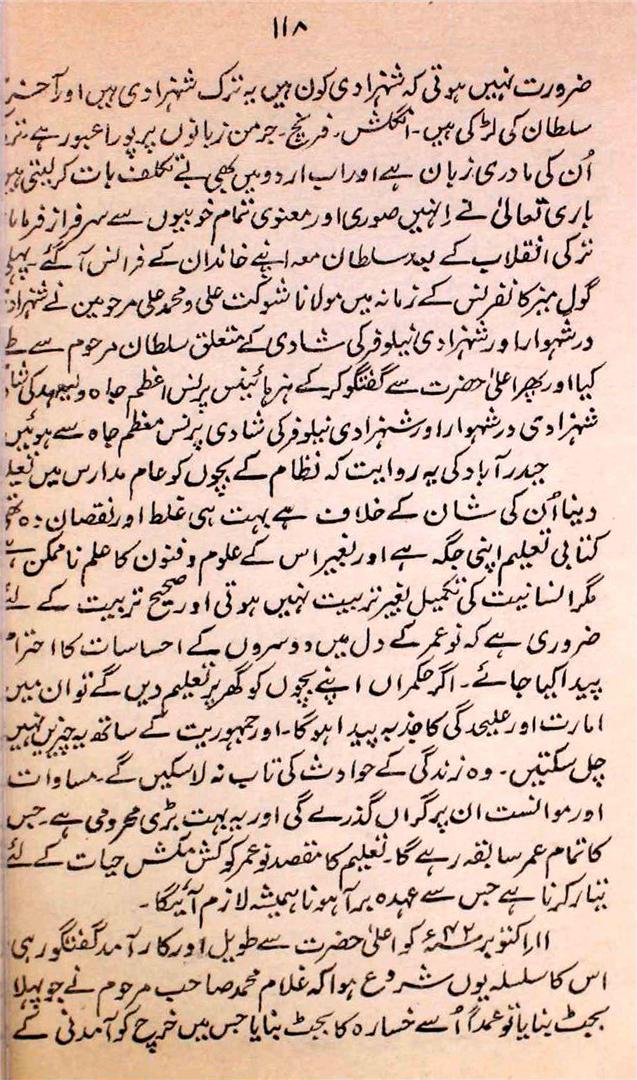 ۱۱۸
ضرورت نہیں ہوتی کہ شہزادی کون ہیں یہ ترک شہزادی ہیں اور آخری
سلطان کی لڑکی ہیں۔ انگلش۔ فرنچ۔ جرمن زبانوں پر پورا عبور ہے
اُن کی مادری زبان ہے اور اب اردو میں بھی بے تکلف بات کر لیتی ہیں
باری تعالیٰ نے انہیں صوری اور معنوی تمام خوبیوں سے سرفراز فرمایا
ترکی انقلاب کے بعد سلطان معہ اپنے خاندان کے فرانس آ گئے۔ پہلی
گول میز کانفرنس کے زمانہ میں مولانا شوکت علی و محمد علی مرحومین نے شہزادی
درشہوار اور شہزادی نیلوفر کی شادی کے متعلق سلطان مرحوم سے طے
کیا اور پھر اعلیٰ حضرت سے گفتگو کر کے ہزہائینس پرنس اعظم جاہ ولیعہد کی شادی
شہزادی درشہوار اور شہزادی نیلوفر کی شادی پرنس معظم جاہ سے ہوئیں
حیدرآباد کی یہ روایت کہ نظام کے بچوں کو عام مدارس میں تعلیم
دینا اُن کی شان کے خلاف ہے بہت ہی غلط اور نقصان دہ تھی
کتابی تعلیم اپنی جگہ ہے اور بغیر اس کے علوم و فنون کا علم ناممکن ہے
مگر انسانیت کی تکمیل بغیر تربیت نہیں ہوتی اور صحیح تربیت کے لئے
ضروری ہے کہ نوعمر کے دل میں دوسروں کے احساسات کا احترام
پیدا کیا جائے۔ اگر حکمراں اپنے بچوں کو گھر پر تعلیم دیں گے تو ان میں
امارت اور علیحدگی کا جذبہ پیدا ہوگا۔ اور جمہوریت کے ساتھ یہ چیزیں نہیں
چل سکتیں۔ وہ زندگی کے حوادث کی تاب نہ لا سکیں گے۔ مساوات
اور موانست ان پر گراں گذرے گی اور یہ بہت بڑی محرومی ہے۔ جس
کا تمام عمر سابقہ رہے گا۔ تعلیم کا مقصد نوعمر کو کش مکش حیات کے لئے
تیار کرنا ہے جس سے عہدہ برآ ہونا ہمیشہ لازم آئیگا۔
۱۱ اکتوبر ۴۲ء کو اعلیٰ حضرت سے طویل اور کارآمد گفتگو رہی
اس کا سلسلہ یوں شروع ہوا کہ غلام محمد صاحب مرحوم نے جو پہلا
بجٹ بنایا تو عمداً اُسے خسارہ کا بجٹ بنایا جس میں خرچ کو آمدنی کے